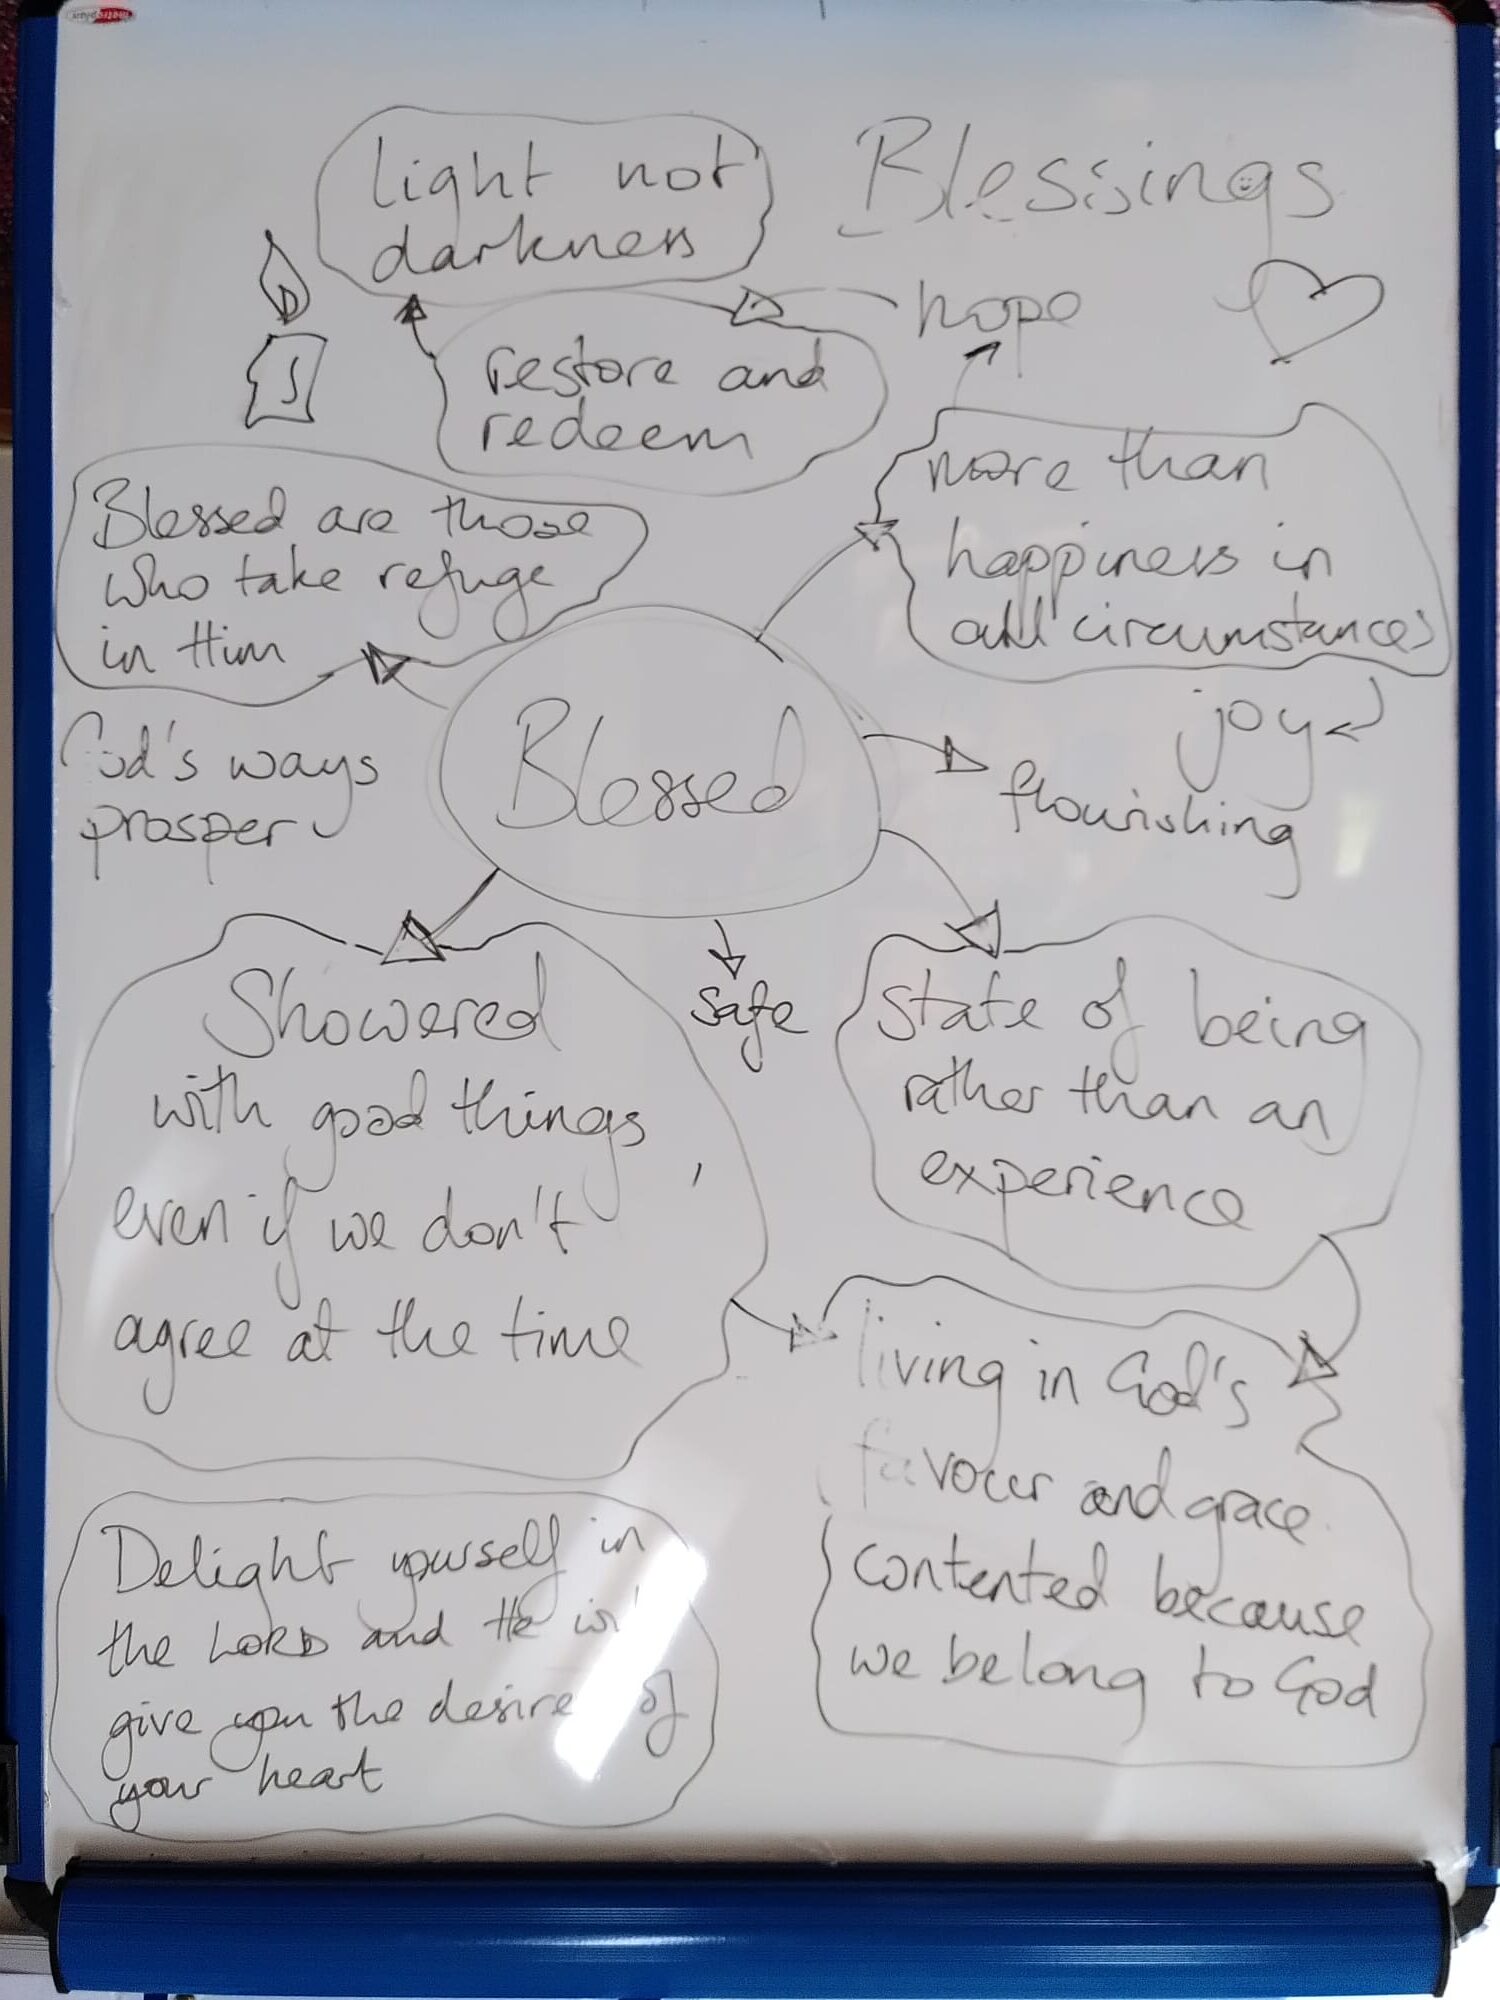 light not
darkness
Blessings
hope
restore and
redeem
more than
happiness in
all circumstances
joy
flourishing
Blessed are those
who take refuge
in Him
God's ways
prosper
Blessed
Showered
with good things
even if we don't
agree at the time
safe
state of being
rather than an
experience
living in God's
favour and grace
contented because
we belong to God
Delight yourself in
the LORD and He will
give you the desires of
your heart